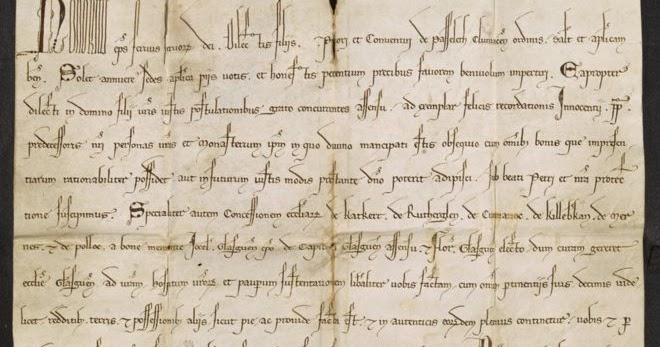 eps servus servor dei. Dilectis filiis. Priori et Conventui de Passeleth Cluniacen ordinis. salt et aplicam
ben. Solet annuere sedes aplica piis votis. et honestis petentium precibus favorem benivolum impertiri. Eapropter
dilecti in domino filii vris iustis postulationibus grato concurrentes assensu. ad exemplar felicis recordationis Innocentii. pp.
predecessoris nri personas vras et monasterium ipm in quo divino mancipati estis obsequio cum omib bonis que impresen
tiarum rationabiliter possidet aut in futurum iustis modis prestante dno poterit adipisci. sub beati Petri et nra protec
tione suscipimus. Specialiter autem Concessionem eccliarz de Katkert. de Rutherglen. de de Killebkan. de Mer
nes. et de polloc. a bone memorie Jocel. Glasguen epo de Capituli Glasguen assensu et Flor. Glasguen electo dum curam gereret
ecclie Glasguen ad vram hospitum vror et pauperum sustentationem libaliter vobis factam. cum omib pertinentiis suis decimis vide
licet redditib terris. et possessionib aliis sicut pie ac provide facta est. et in autenticis eorumdem plenius continetur. vobis et p